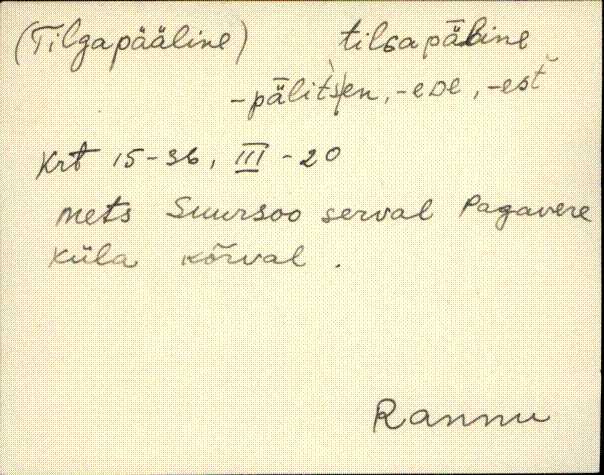 (Tilgapääline) tilgapäline
-pälitsen, -ede, -est
Krt 15-36, III - 20
mets Suursoo serval Pagavere
küla kõrval.
Rannu